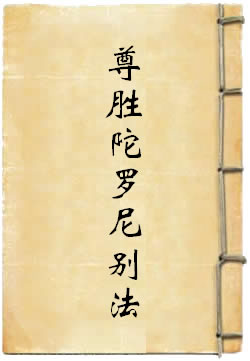 尊胜陀罗尼别法